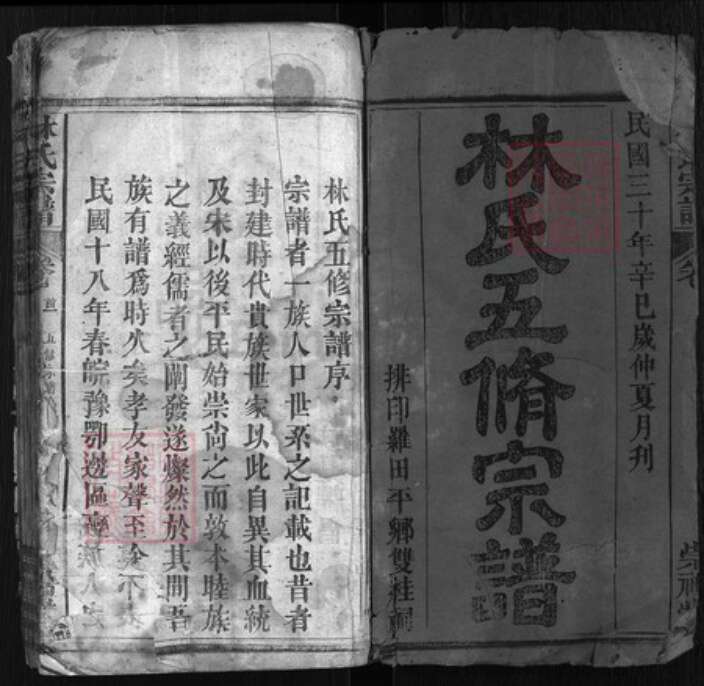 民國三十年辛巳歲仲夏月刊
林氏五脩宗譜
排印羅田平鄉雙桂祠
林氏五修宗譜序
宗譜者一族人口世系之記載也昔者
封建時代貴族世家以此自異其血統
及宋以後平民始崇尚之而敦本睦族
之義經儒者之闡發遂燦然於其間吾
族有譜爲時久矣孝友家聲至今不
民國十八年春皖豫鄂邊區
林氏宗譜
卷首